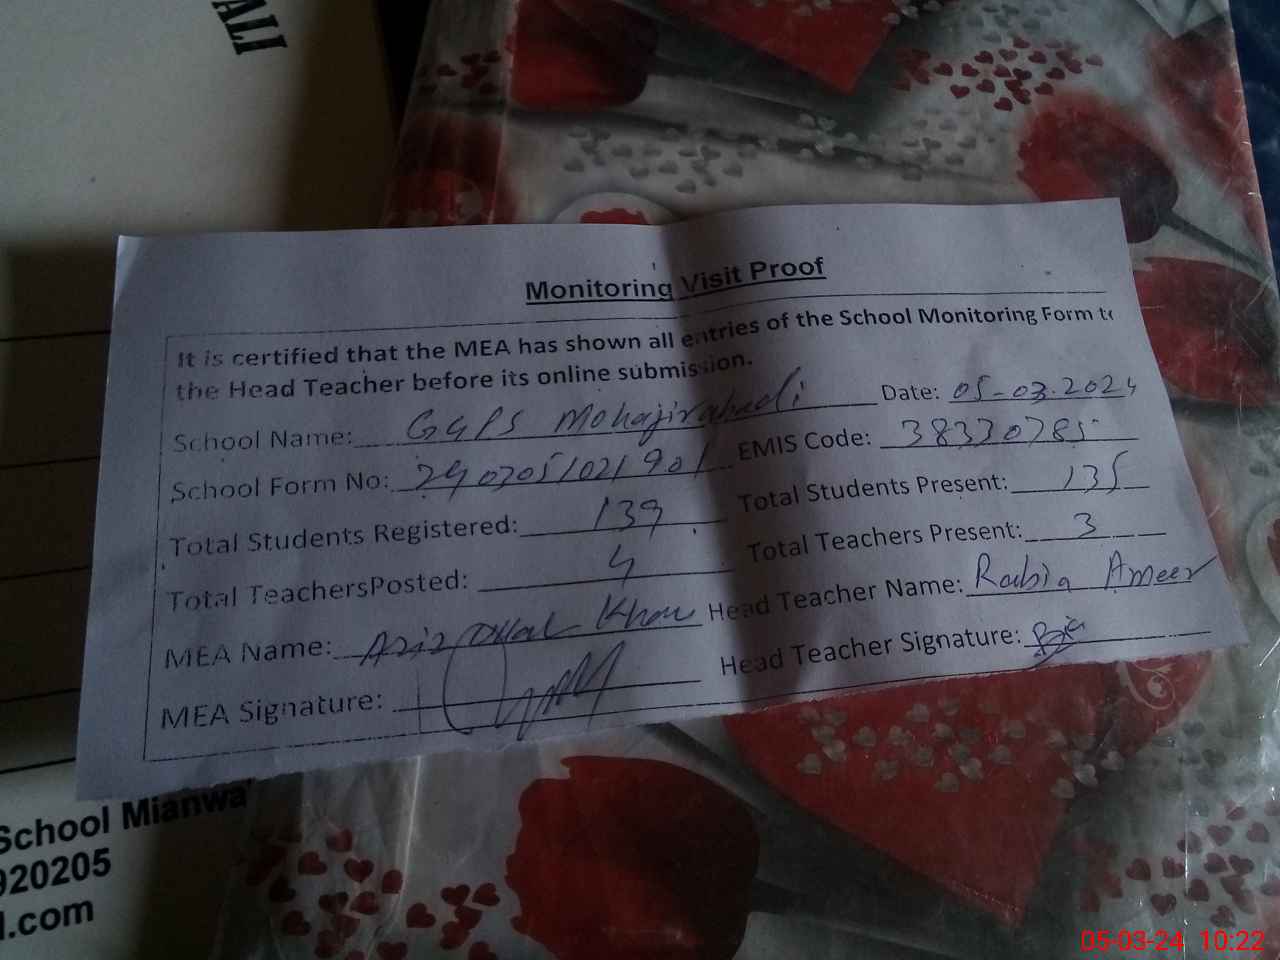 ALI
Monitoring Visit Proof
It is certified that the MEA has shown all entries of the School Monitoring Form to
the Head Teacher before its online submission.
School Name: GGPS Mohajirabad Date: 05-03-2024
School Form No: 2903051021901 EMIS Code: 38330785
Total Students Registered: 139 Total Students Present: 135
Total TeachersPosted: 4 Total Teachers Present: 3
MEA Name: Aziz Khan Head Teacher Name: Rabia Ameer
MEA Signature: Head Teacher Signature:
School Mianwa
920205
l.com
05-03-24 10:22